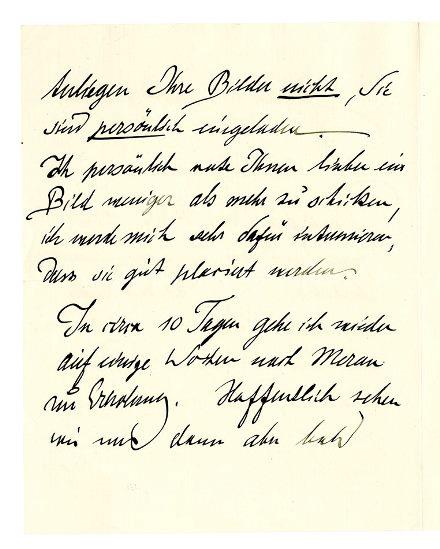 Ihre Bilder nicht, Sie
sind persönlich eingeladen.
Ich persönlich rate Ihnen lieber ein
Bild weniger als mehr zu schicken,
ich werde mich sehr dafür interessieren,
dass sie gut placiert werden.
In circa 10 Tagen gehe ich wieder
auf einige Wochen nach Meran
zur Erholung. Hoffentlich sehen
wir uns dann aber bald